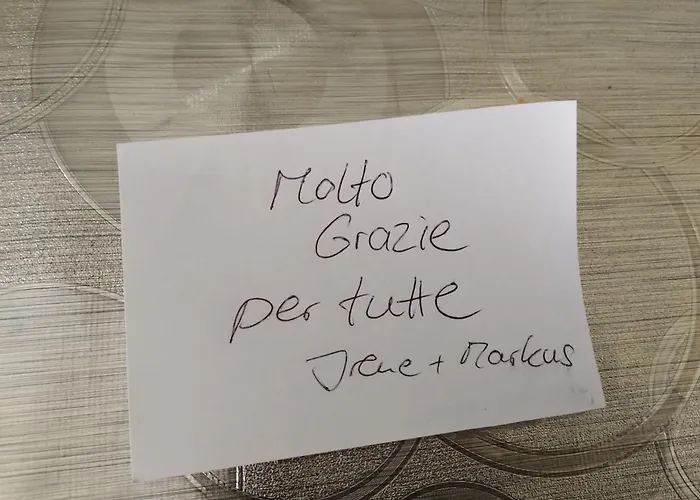 Molto
Grazie
per tutte
Irene + Markus